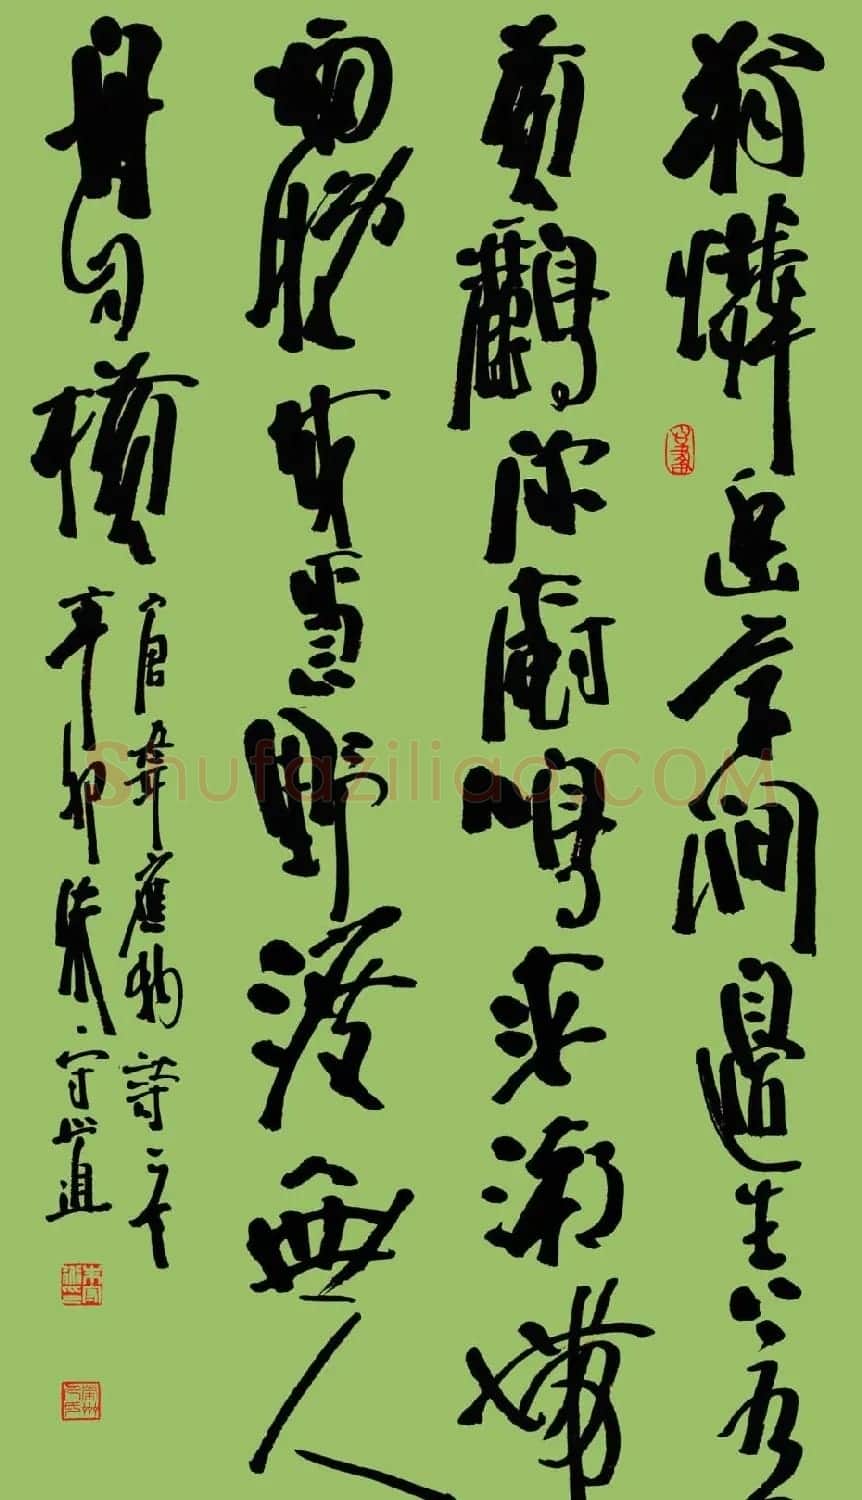 獨憐幽草澗邊生上有
黃鸝深樹鳴春潮帶
雨晚来急野渡無人
舟自橫
唐韋應物詩
辛卯 守道
Shufaziliao.COM